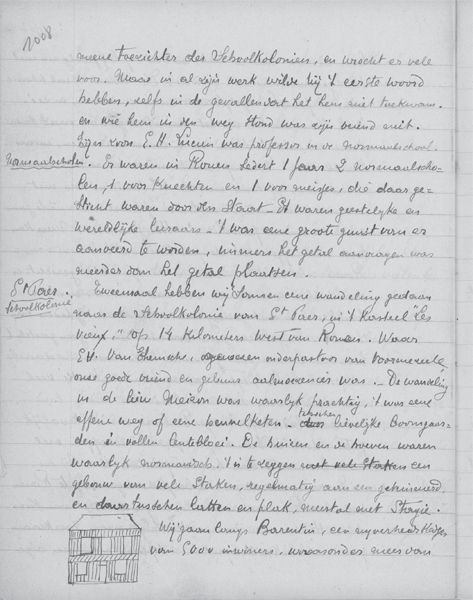 1008
meene toezichter der Schoolkolonien, en wrocht er vele
voor. Maar in al zijn werk wilde hij 't eerste woord
hebben, zelfs in de gevallen dat het hem niet toekwam.
en wie hem in den weg stond was zijn vriend niet.
Zijn zoon E.H. Lucien was professor in de normaalschool.
Normaalscholen. Er waren in Rouen sedert 1 jaar 2 normaalscho-
len, 1 voor Knechten en 1 voor meisjes, die daar ge-
sticht waren door den Staat. Er waren geestelijke en
wereldlijke leeraars. 't was eene groote gunst van er
aanveerd te worden, immers het getal aanvragen was
meerder dan het getal plaatsen.
St Paer.
Schoolkolonie
Tweemaal hebben wij samen eene wandeling gedaan
naar de Schoolkolonie van St Paer, in 't Kasteel "Les
vieux," op 14 Kilometers west van Rouen. Waar
E.H. Van onderpastoor van Voormezeele
onze goede vriend en gebuur aalmoezenier was. De wandeling
in de lieve Meizon was waarlijk prachtig, 't was eene
effene weg of eene tusschen lievelijke Boomgaar-
den in vollen lentebloei. De huizen en de hoeven waren
waarlyk normandisch, 't is te zeggen met vele Staken een
gebouw van vele Staken, regelmatig aaneen getimmerd,
en daartusschen latten en plak, meestal met Strooie.
Wij gaan langs Barentin, een nyverheids
van 5000 inwoners, waaronder meer van